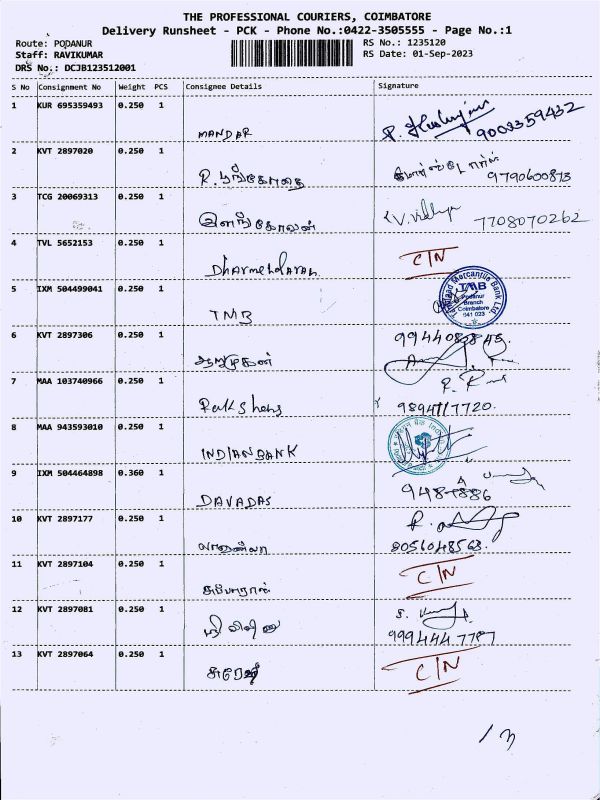 THE PROFESSIONAL COURIERS, COIMBATORE
Delivery Runsheet - PCK - Phone No.:0422-3505555 - Page No.:1
Route: PODANUR RS No.: 1235120
Staff: RAVIKUMAR RS Date: 01-Sep-2023
DRS No.: DCJB123512001
S No Consignment No Weight PCS Consignee Details Signature
1 KUR 695359493 0.250 1
MANDAR 9003359432
2 KVT 2897020 0.250 1
R. பூங்கோதை 9790600873
3 TCG 20069313 0.250 1
இளங்கோவன் 7708070262
4 TVL 5652153 0.250 1
Dharmendaran C/N
5 IXM 504499041 0.250 1
TMB
Tamilnad Mercantile Bank Ltd.
TMB
Podanur
Branch
Coimbatore
641 023
6 KVT 2897306 0.250 1
ஆறுமுகன்
7 MAA 103740966 0.250 1
9894117720.
8 MAA 943593010 0.250 1
INDIAN BANK
9 IXM 504464898 0.360 1
DAVADAS
10 KVT 2897177 0.250 1
8056048563.
11 KVT 2897104 0.250 1
C/N
12 KVT 2897081 0.250 1
13 KVT 2897064 0.250 1
C/N